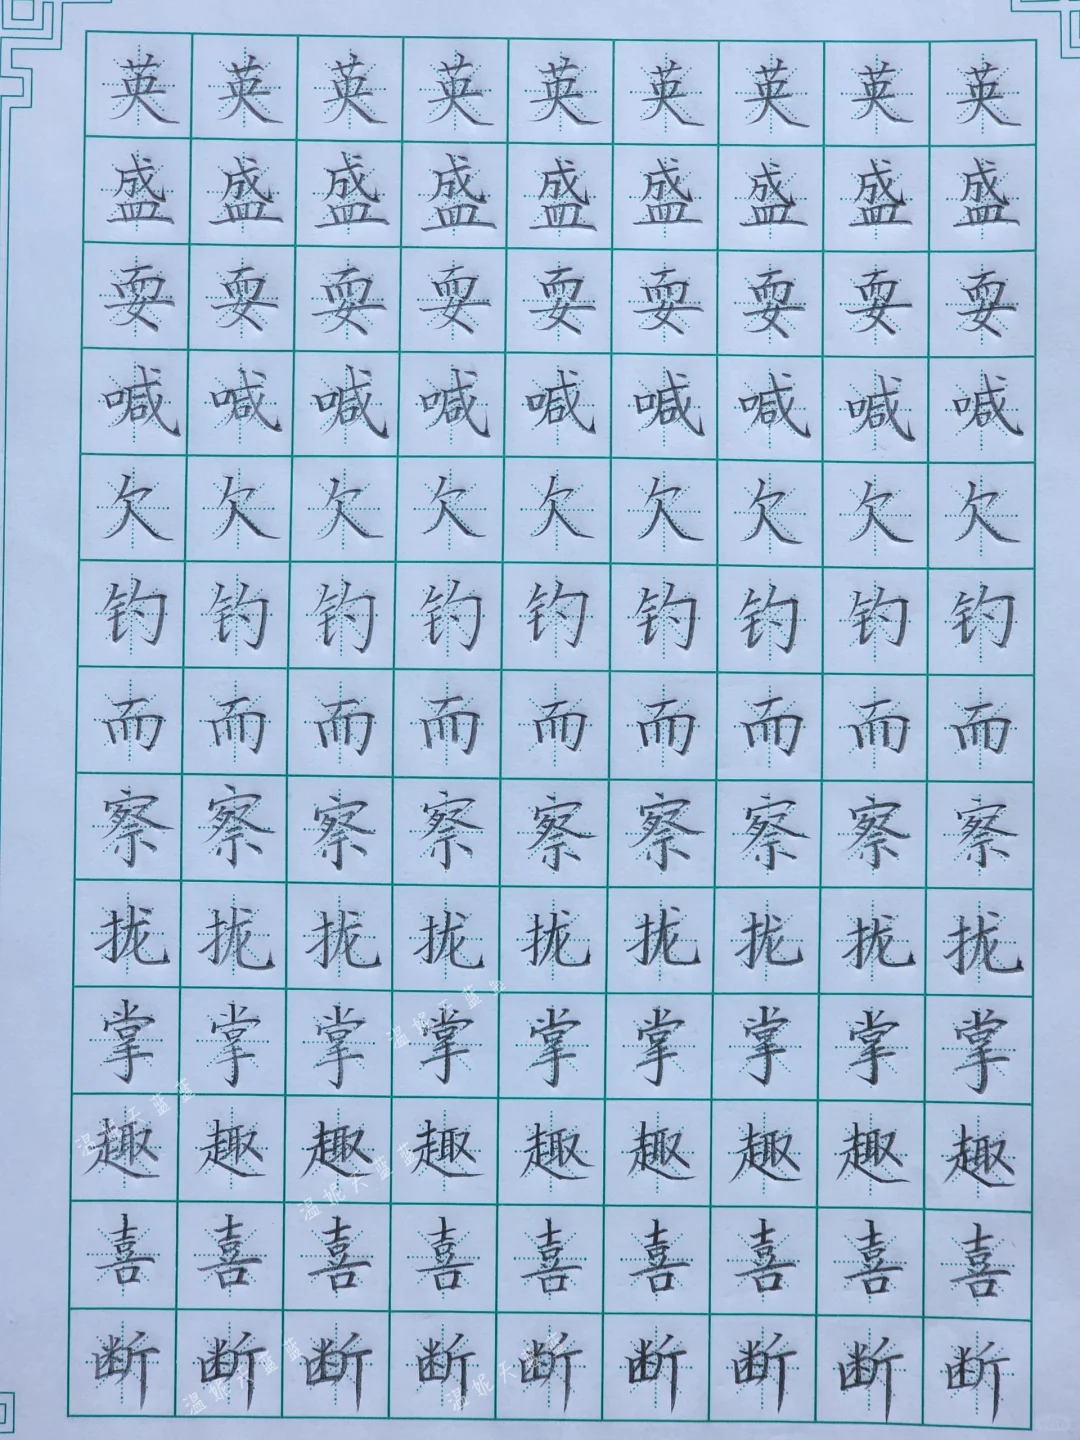 英英英英英英英英英
盛盛盛盛盛盛盛盛盛
耍耍耍耍耍耍耍耍耍
喊喊喊喊喊喊喊喊喊
欠欠欠欠欠欠欠欠欠
钓钓钓钓钓钓钓钓钓
而而而而而而而而而
察察察察察察察察察
拢拢拢拢拢拢拢拢拢
掌掌掌掌掌掌掌掌掌
温妮天蓝蓝
温妮天蓝蓝
趣趣趣趣趣趣趣趣趣
温妮天蓝蓝
喜喜喜喜喜喜喜喜喜
断断断断断断断断断
温妮天蓝蓝
温妮天蓝蓝